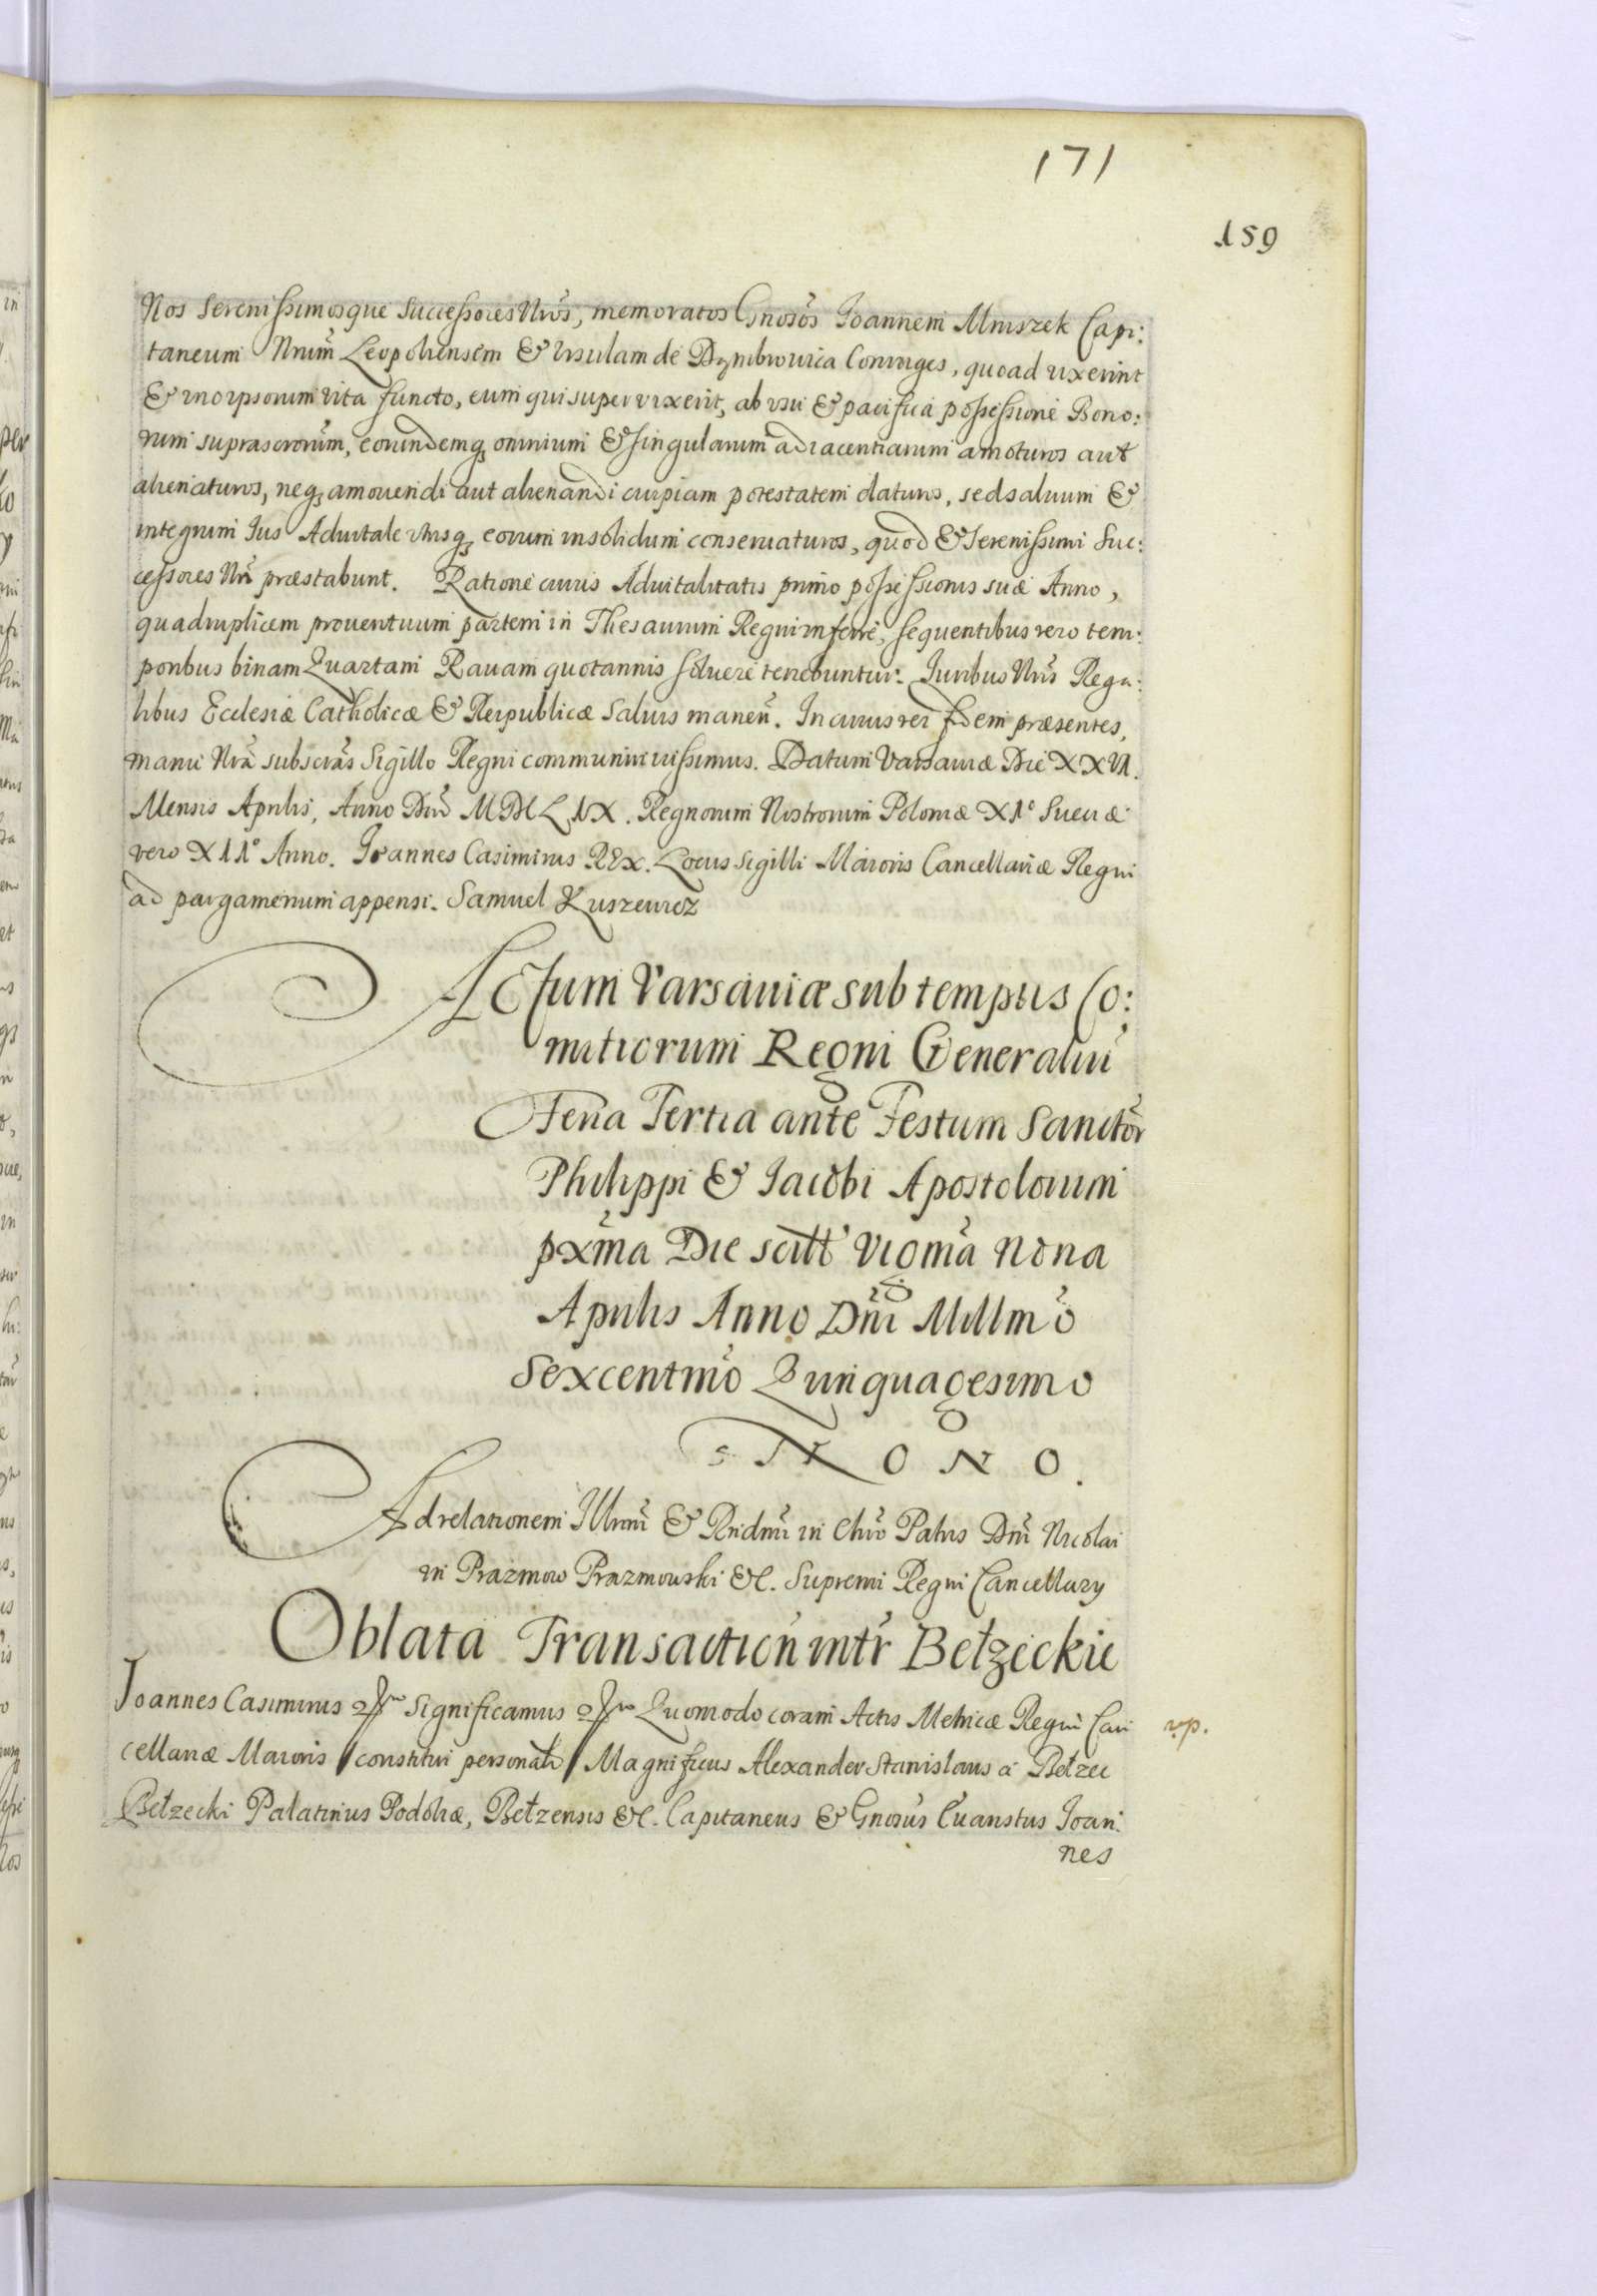 171
159
Nos Serenissimosque Successores Nros, memoratos Gnosos Joannem Mniszek Capi:
taneum Nrum Leopoliensem & Ursulam de Dąmbrowica Coniuges, quoad vixerint
& uno ipsorum vita functo, eum qui supervixerit, ab usu & pacifica possessione Bono:
rum suprascrorum, eorundemq omnium & singularum adiacentiarum amoturos aut
alienaturos, neq amovendi aut alienandi cuipiam potestatem daturos, sed salvum &
integrum Jus Advitale utriusq eorum in solidum conservaturos, quod & Serenissimi Suc:
cessores Nri præstabunt. Ratione cuius Advitalitatis primo possessionis suæ Anno,
quadruplicem proventuum partem in Thesaurum Regni inferre, sequentibus vero tem:
poribus binam Quartam Ravam quotannis solvere tenebuntur. Juribus Nris Rega:
libus Ecclesiæ Catholicæ & Reipublicæ salvis manen. In cuius rei fidem præsentes,
manu Nra subscras Sigillo Regni communiri iussimus. Datum Varsaviæ Die XXVI.
Mensis Aprilis, Anno Dni MDCLIX. Regnorum Nostrorum Poloniæ XI° Sueciæ
vero XII° Anno. Joannes Casimirus REx. Locus Sigilli Maioris Cancellariæ Regni
ad pargamenum appensi. Samuel Kuszewicz
ACtum Varsaviæ sub tempus Co:
mitiorum Regni Generaliu
Feria Tertia ante Festum Sanctor
Philippi & Jacobi Apostolorum
pxma Die scilt Vigma Nona
Aprilis Anno Dni Millmo
Sexcentmo Quinquagesimo
NONO.
Ad relationem Illrmi & Rndmi in Chro Patris Dni Nicolai
in Prazmow Prazmowski &c. Supremi Regni Cancellary
Oblata Transaction intr Bełzeckie
Joannes Casimirus Significamus Quomodo coram Actis Metricæ Regni Can
cellariæ Maioris constituti personalr Magnificus Alexander Stanislaus a Bełzec
Bełzecki Palatinus Podoliæ, Bełzensis &c. Capitaneus & Gnosus Evaristus Joan:
nes